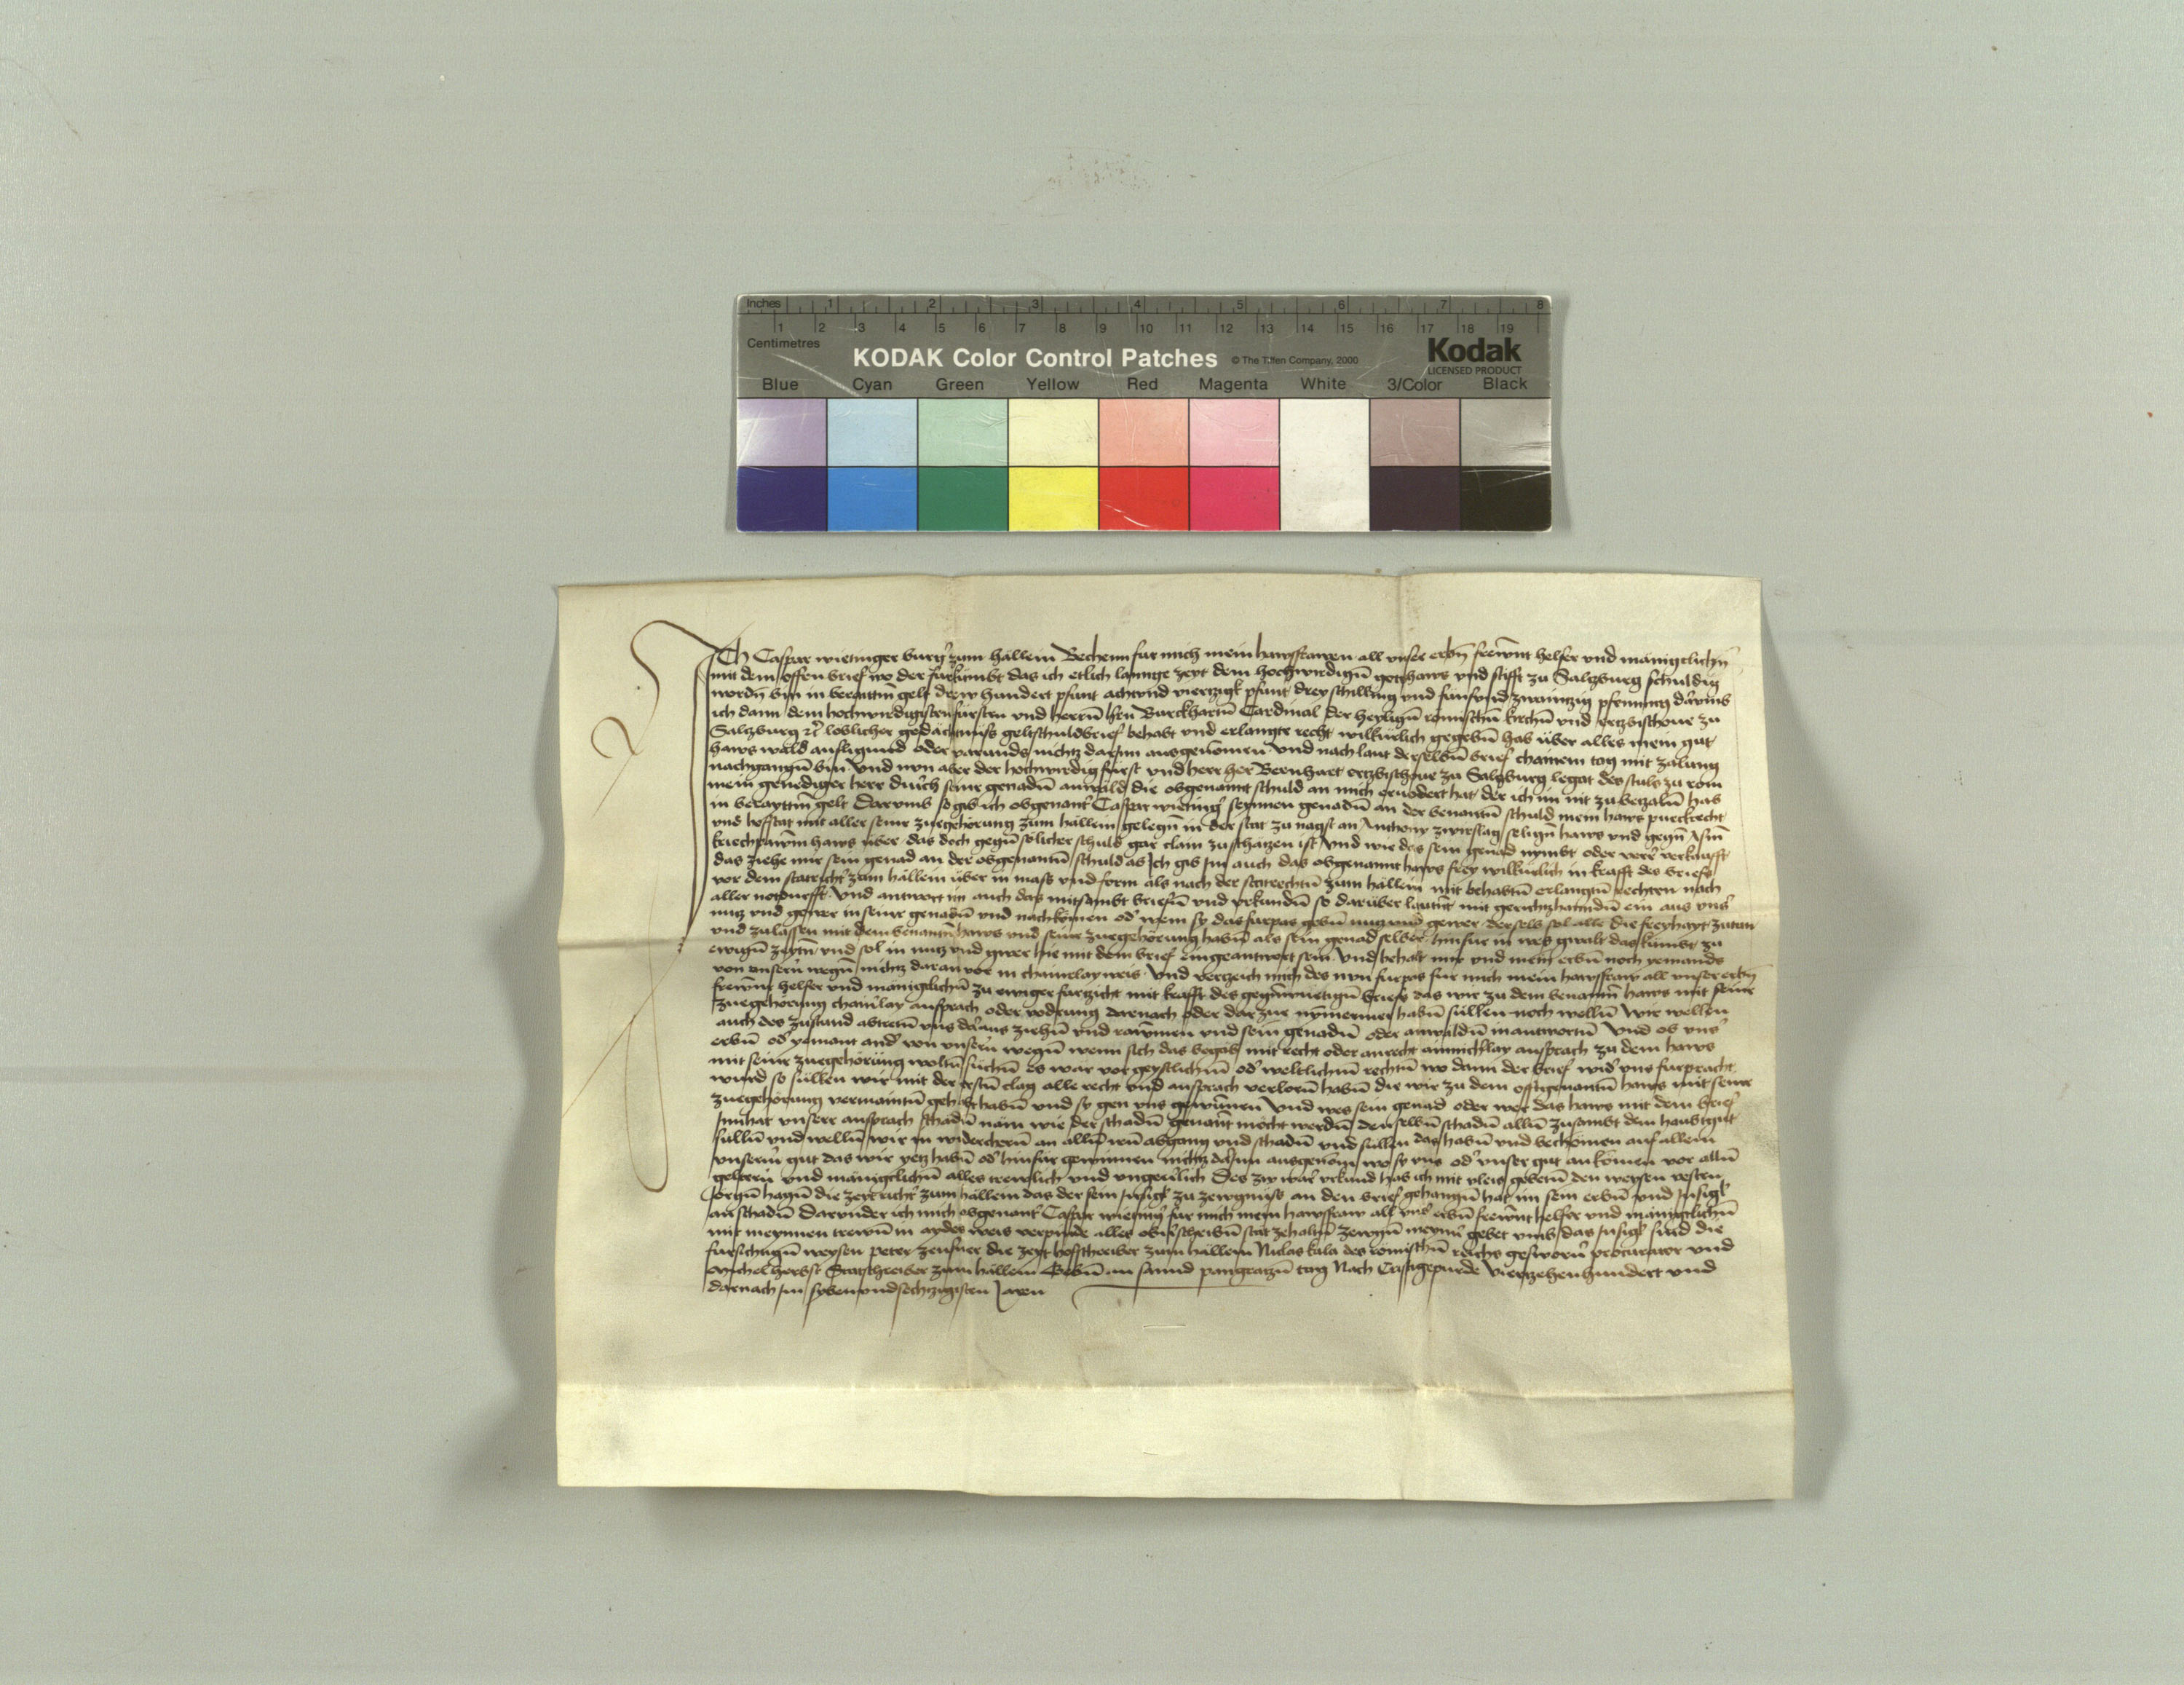 Inches 1 2 3 4 5 6 7 8
1 2 3 4 5 6 7 8 9 10 11 12 13 14 15 16 17 18 19
Centimetres
KODAK Color Control Patches © The Tiffen Company, 2000 Kodak
LICENSED PRODUCT
Blue Cyan Green Yellow Red Magenta White 3/Color Black
Ich Caspar wietinger burg' zum hällein Bechenn fur mich mein hawsfrawen all unser erbn̄ frewnt helfer und mänigclichn̄
mit dem offen brief wo der furkumbt das ich etlich lannge zeyt dem hochwirdigū gotzhaws und stifft zu Salzburg schuldig
wordn̄ bin in beraittm̄ gelt drew hundert pfunt achtvnd viertzigk pfunt drey schilling und funfvnd zwaintzig pfenning darumb
ich dann dem hochwirdigisten fürsten und herrn̄ hern Burckhartn̄ Cardinal der heyligū römischn̄ kirchn̄ und ertzbischoue zu
Salzburg loblicher gedächtnuss geltschuldbrief behabt und erlangte recht wilkürlich gegebū hab über alles mein gut
haws wald aufligund oder varunds nichtz darinn ausgenomen und nach laut derselbū brief chainem tag mit zalung
nachgangū bin Und nun aber der hochwirdig fürst und herr her Bernhart ertzbischoue zu Salzburg legat des stuls zu rom
mein genediger herr durch seine genadū anwäld die obgenannt schuld an mich eruodert hat der ich im nit zubetzaln̄ hab
in berayttm̄ gelt Darumb so gib ich obgenant' Caspar wieting' seynnen genadū an der benantn̄ schuld mein haws purckrecht
und hofstat mit aller seiner zuegehörung zum hällein gelegū in der stat zu nagst an Anthony zwislag seligū haws und gegū
haws über das doch gegū sölicher schuld gar clain zuschatzen ist Und wie das sein genad nymbt oder verkaufft
das ziehe mir sein genad an der obgenantn̄ schuld ab Ich gib im auch das obgenannt haws frey wilkürlich in krafft des briefs
vor dem statricht' zum hällein über in mass und form als nach der statrechtn̄ zum hällein mit behabtn̄ erlangtn̄ rechten nach
aller notdurfft Und antwort im auch das mitsambt briefū und vrkundū so darüber lautnt mit gerichtzhanndū ein aus vns'
nutz und gewer in seiner genadū und nachkomen od' wem sy das furpas gebū nutz und gewer derselb sol alle die freyhayt zutun
und zulassen mit dem benantn̄ haws und seiner zuegehörung habū als sein genad selber hinfur in wes gwalt das kumbt zu
ewigū zeytn̄ und sol in nutz und gwer hie mit dem brief eingeantwort sein Und behalt mir und mein erbū noch yemands
von unsern̄ wegū nichtz daran vor in chainerlay weis Und vertzeich mich des nun furpas fur mich mein hawsfraw all unser erbn̄
frewnt helfer und mänigclichn̄ zu ewiger furtzicht mit krafft des gegenwürtigū briefs das wir zu dem benantn̄ haws mit seiner
zuegehörung chainlay ansprach oder vodrung darnach oder dar zue nymermer habū süllen noch wellū Wir wellen
auch des zustund abtretn̄ vns daraus ziehū und rawmen und sein genadū oder anwäldū inantwortn̄ Und ob vns'
erbū od' yemant and' von unsern̄ wegū wenn sich das begäb mit recht oder anrecht ainnichlay ansprach zu dem haws
mit seiner zuegehörung woltn̄ süchn̄ es wär vor geystlichn̄ od' weltlichn̄ rechtn̄ wo dann der brief wid' vns furpracht
wurd so süllen wir mit der erstn̄ clag alle recht und ansprach verlorn̄ habū die wir zu dem offtgenantn̄ haws mit seiner
zuegehörung vermaintn̄ gehabt habū und sy gen vns gewunnen Und wes sein genad oder wer das haws mit dem brief
innhat unserr ansprach schadū näm wie der schadū genannt möcht werdū denselbū schadū allū zusambt dem haubtgut
süllū und wellū wir in widerchern̄ an allū irn̄ abgang und schadū und süllen das habū und bechomen auf allem
unserm̄ gut das wir yetz habū od' hinfur gewinnen nichtz darinn ausgenom̄ wo sy vns od' unser gut ankömen vor allū
geltern̄ und mänigclichn̄ alles trewlich und ungeuerlich Des zw war' vrkund hab ich mit vleis gebetn̄ den weysen vesten
Jorgū die zeyt richt' zum hällein das der sein Insigl' zu zewgnuss an den brief gehangū hat im sein erbū und Insigl'
an schadū Darunder ich mich obgenant' Caspar wieting' fur mich mein hawsfraw all vns' erbū frewnt helfer und mänigclichn̄
mit meynnen trewū in aydes weis verpinde alles obuerschribū stat zehaltn̄ zewgū meyner gebet vmb das Insigl' sind die
fursichtigū weysen peter die zeyt hofschreiber zum hällein Niclas kala des römischn̄ reichs gesworn̄ procurator und
Michel herbst Statschreiber zum hällein Gebū an sannd pangratzū tag Nach Cristigepurde Viertzehenhundert und
darnach Im sybenundsechtzigisten Jaren